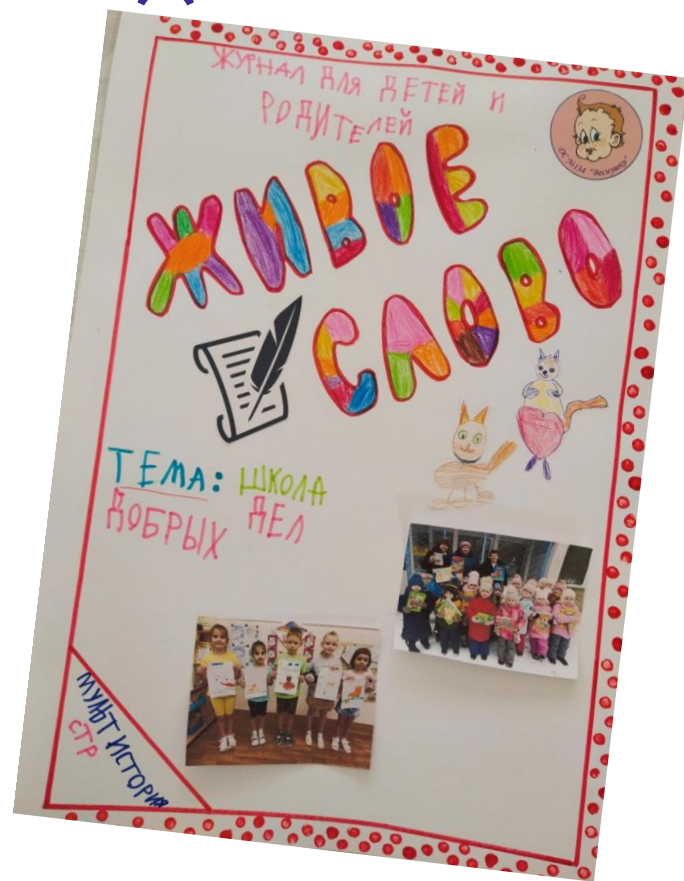 ЖУРНАЛ ДЛЯ ДЕТЕЙ И
РОДИТЕЛЕЙ
ЖИВОЕ
СЛОВО
ТЕМА: ШКОЛА
ДОБРЫХ ДЕЛ
МУЛЬТ ИСТОРИЯ
СТР